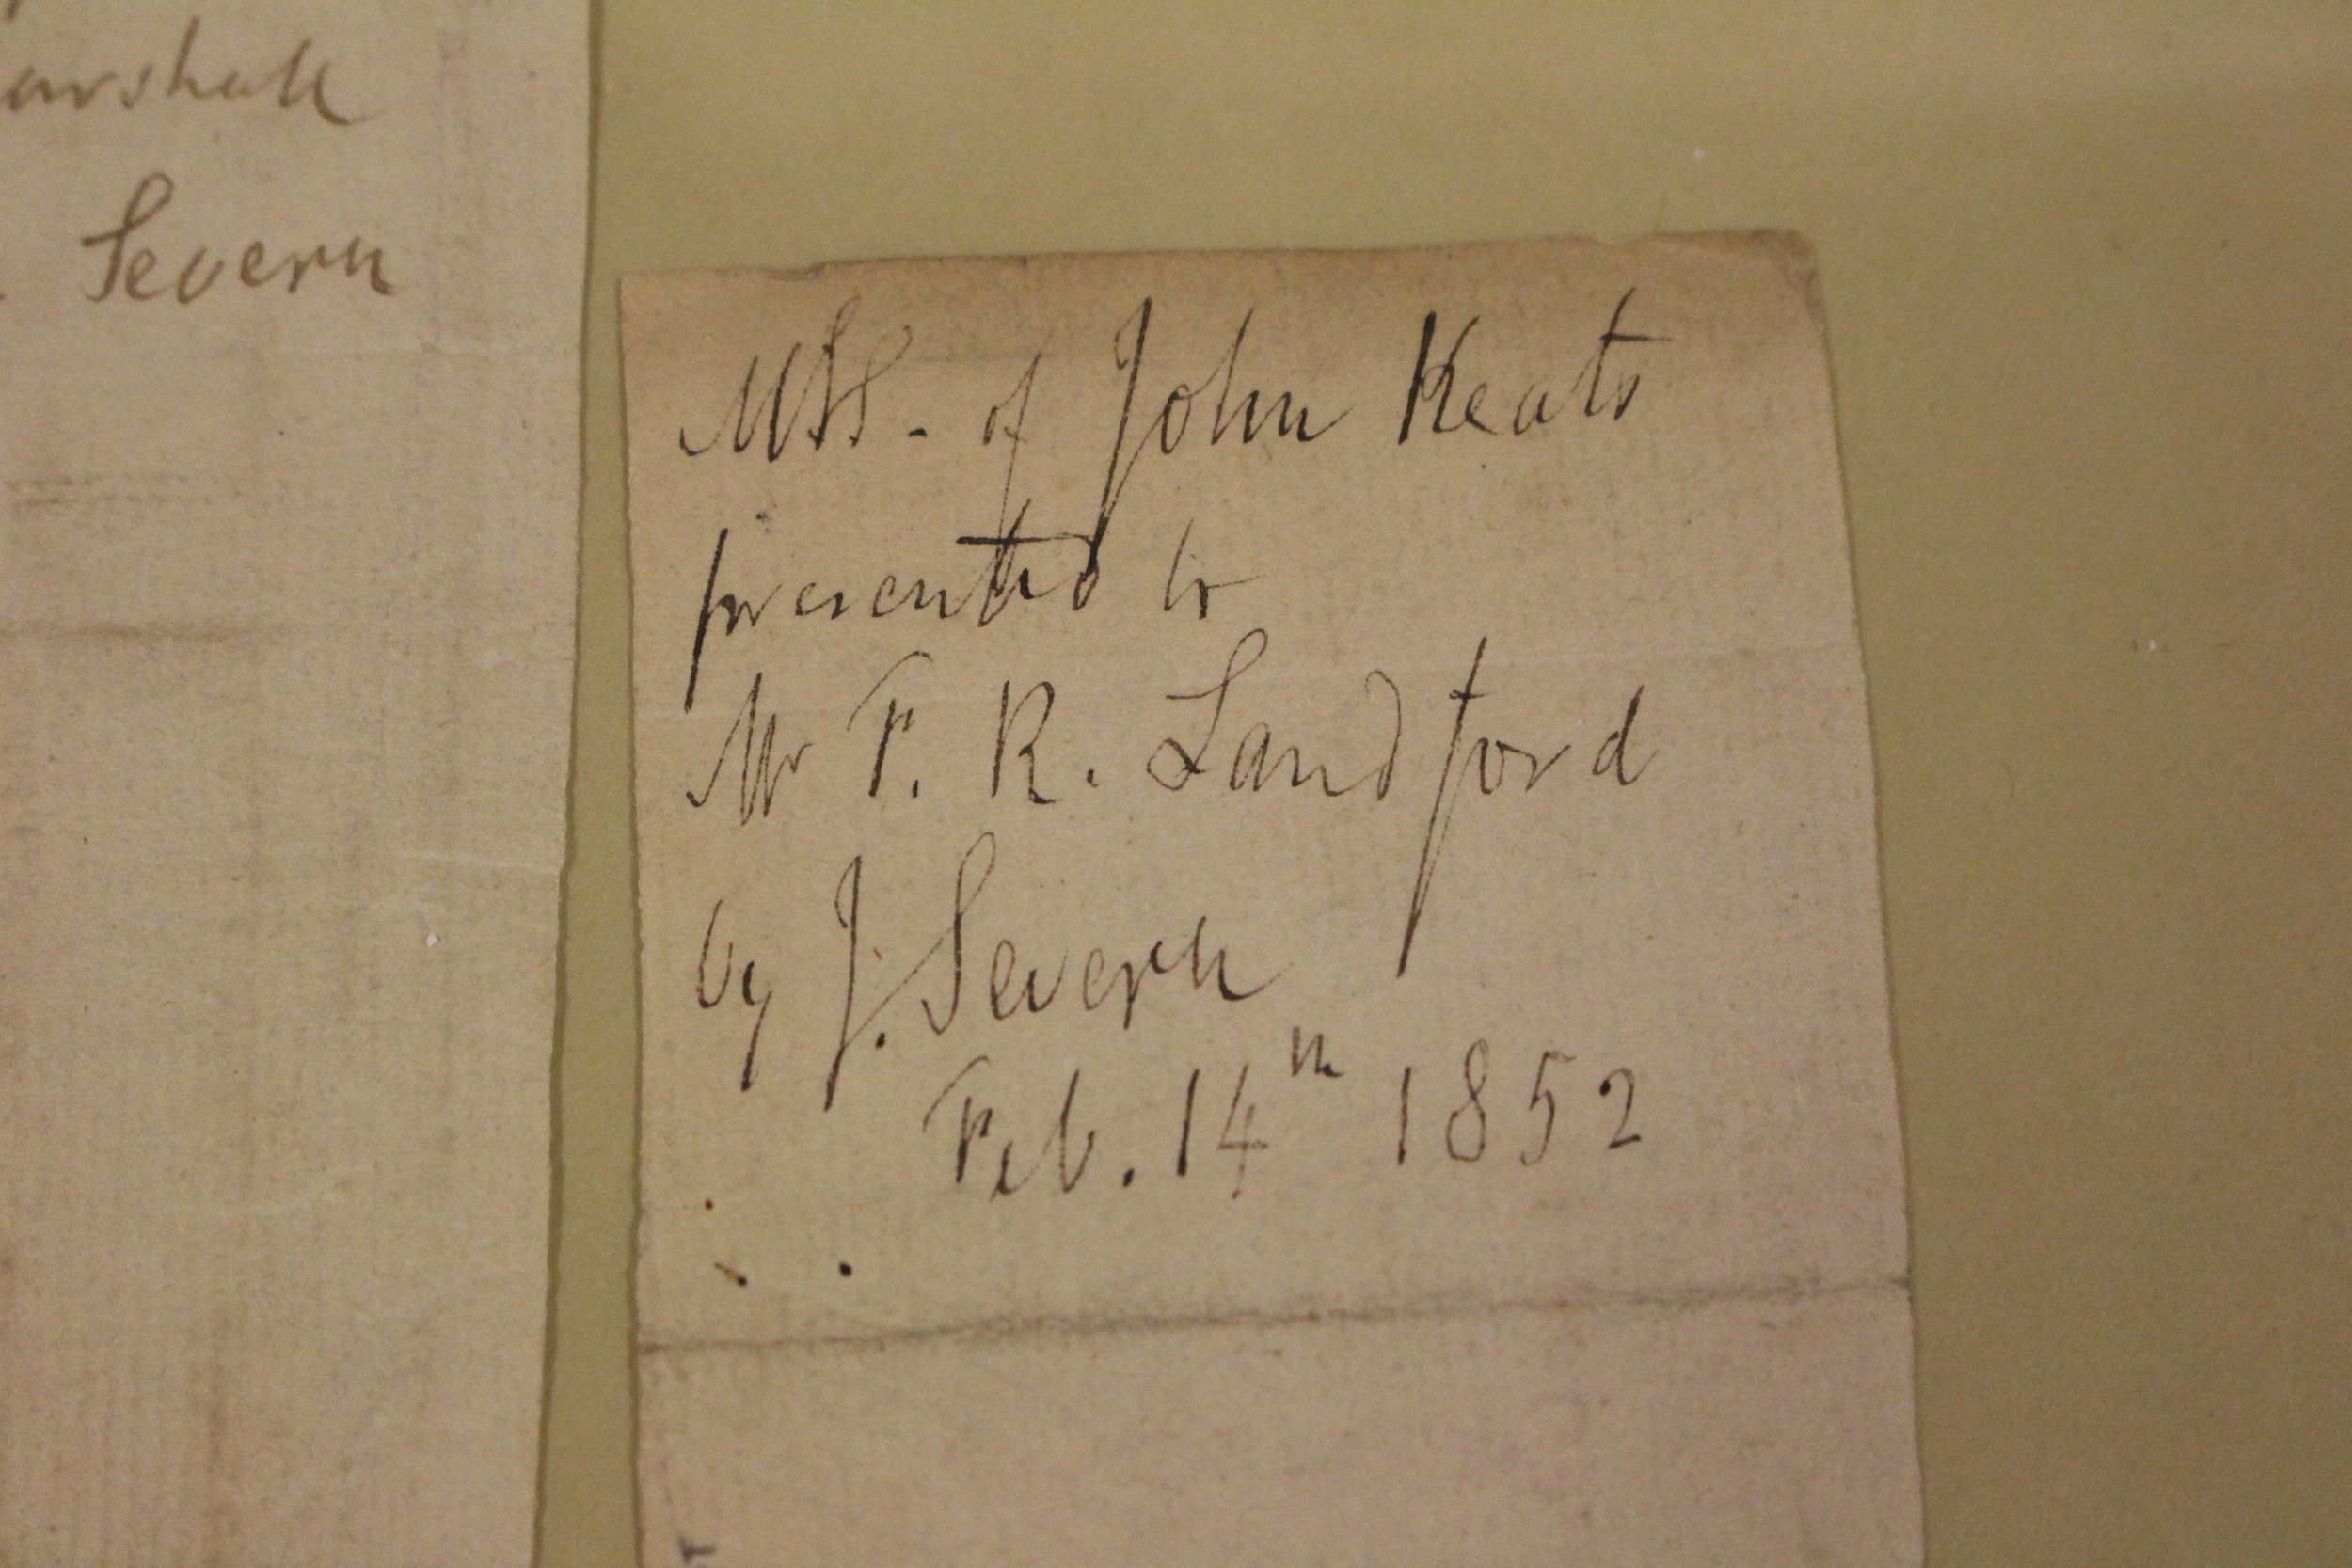 Severn
MSS. of John Keats
presented to
Mr F. R. Landford
by J. Severn
Feb. 14th 1852